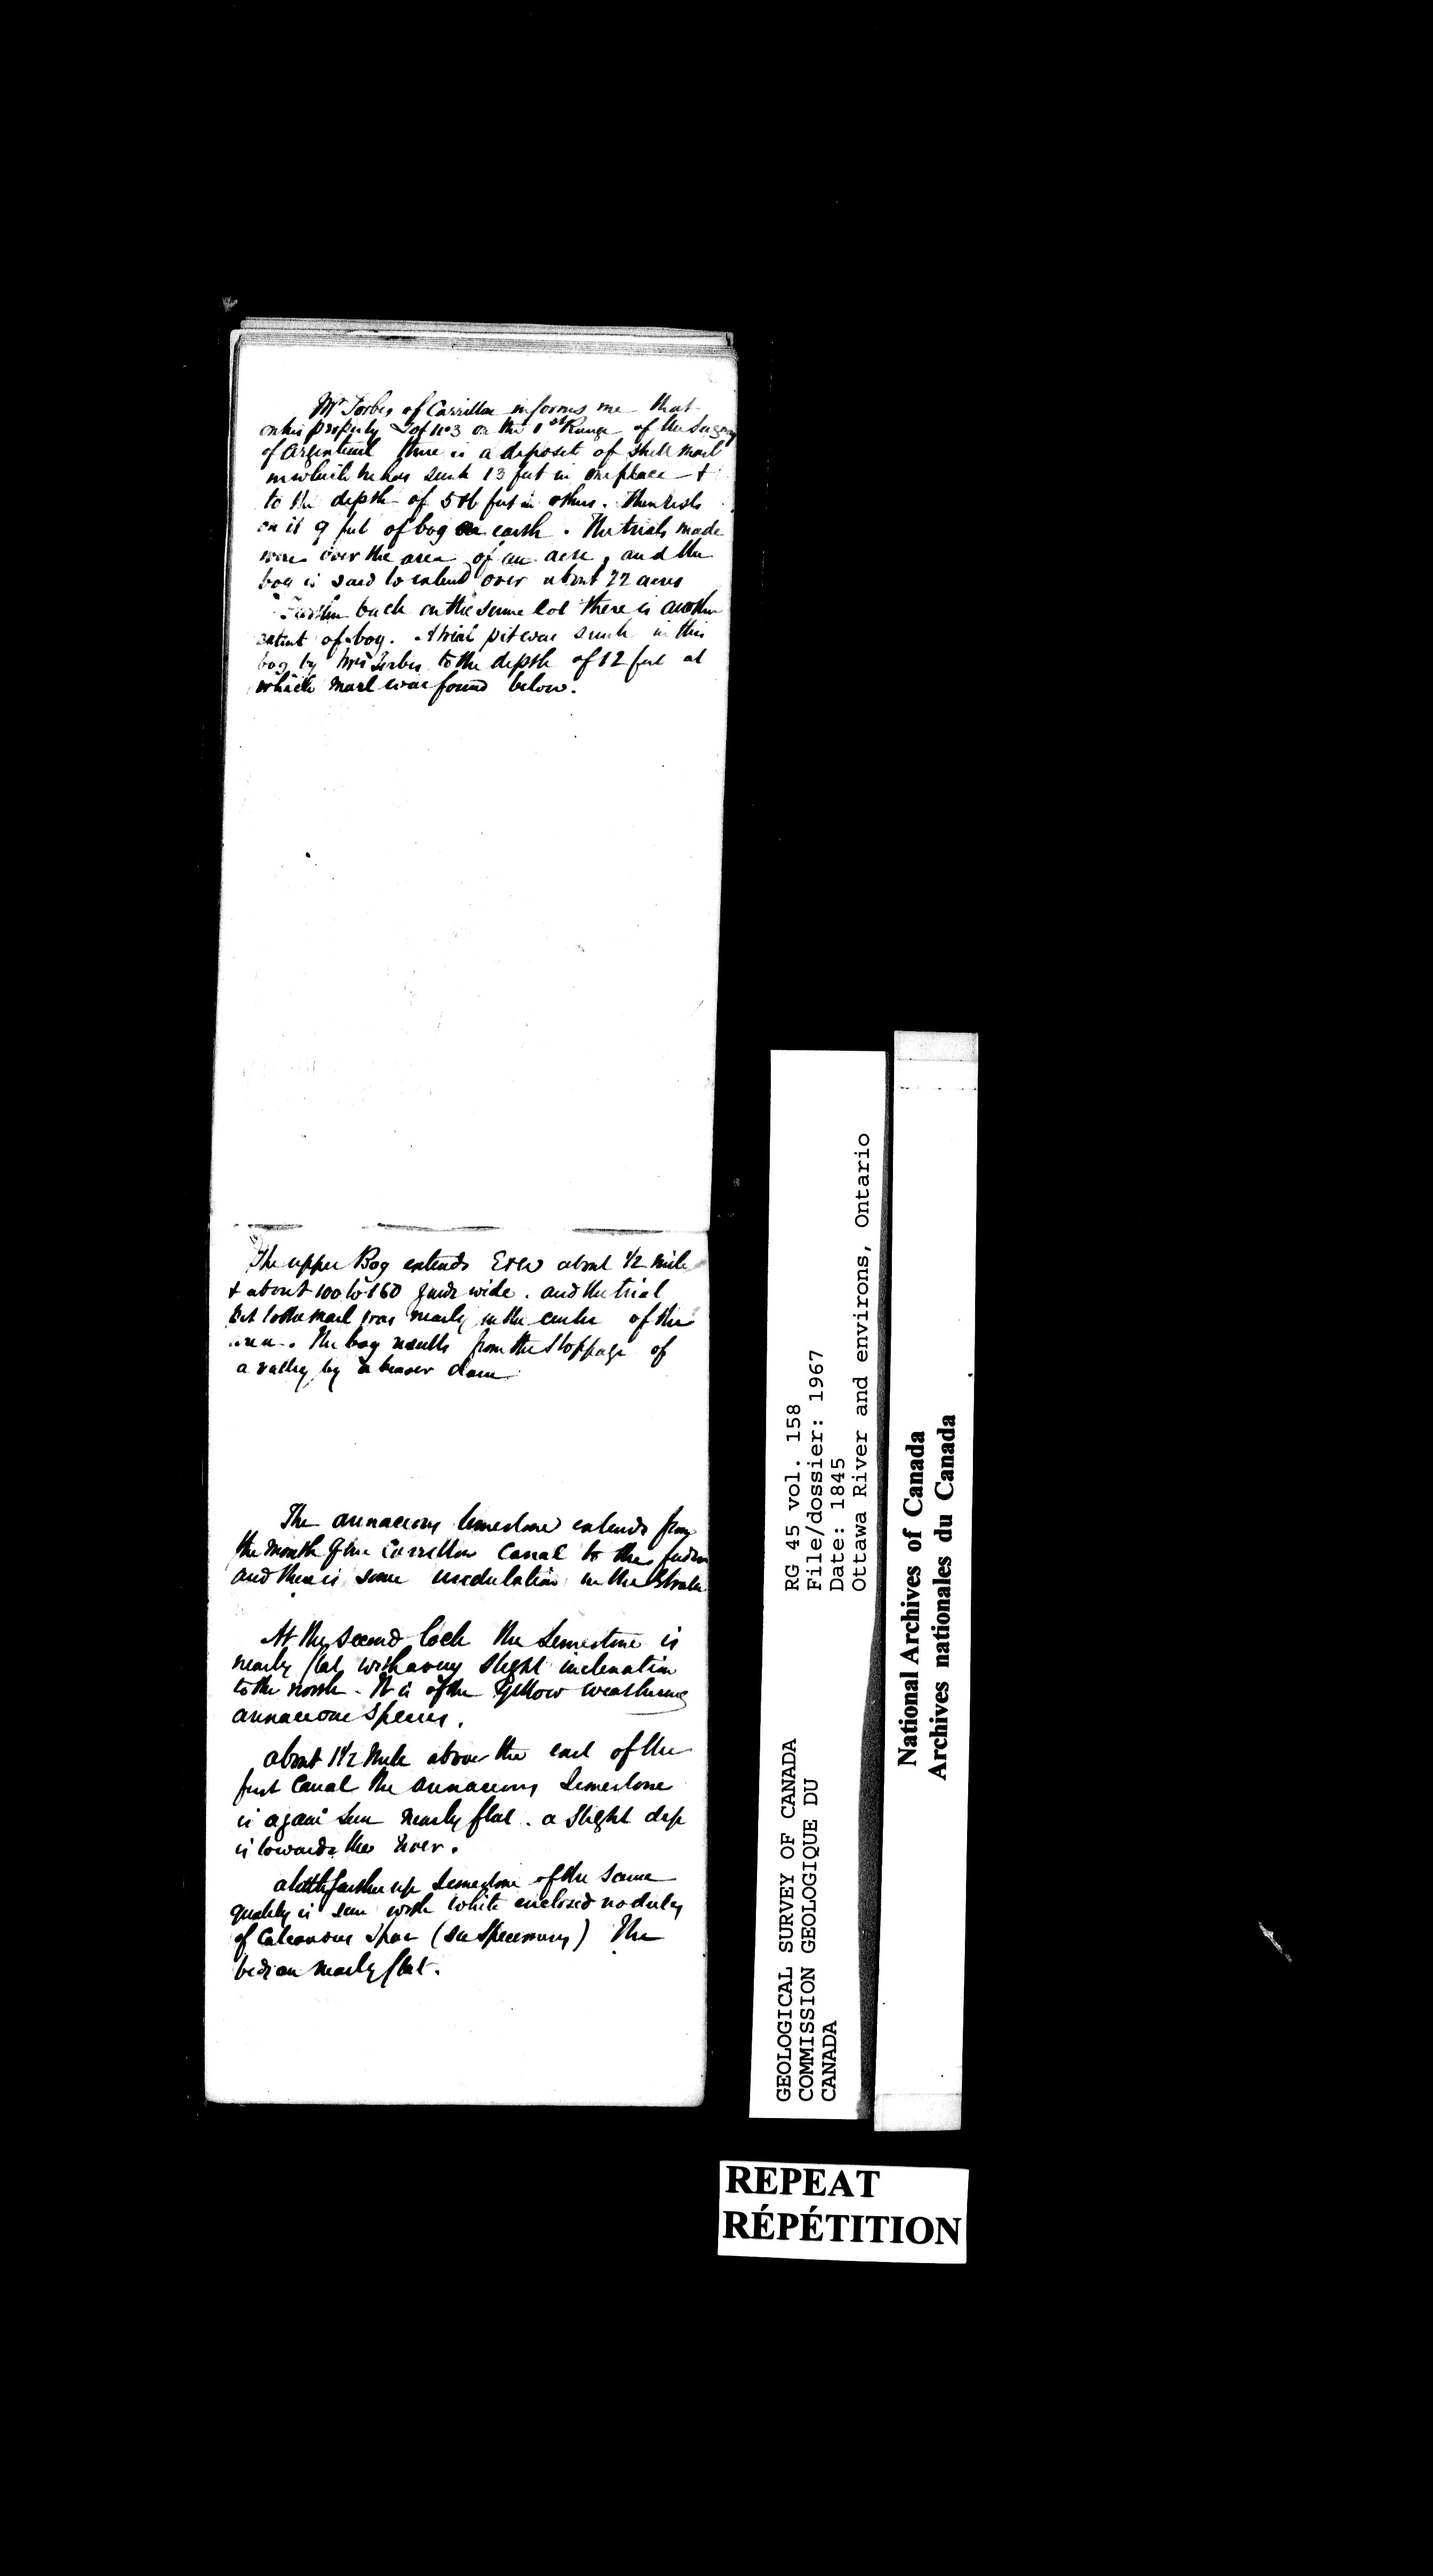 Mr Forbes of Carrillon informs me that
on his property Lot No 3 on the 1st Range of the Seigniory
of Argenteuil there is a deposit of shell marl
in which he has sunk 13 feet in one place &
to the depth of 5 & 6 feet in others. There rests
on it 9 feet of bog earth. The trials made
were over the area of an acre, and the
bog is said to extend over about 22 acres
Farther back on the same lot there is another
extent of bog. A trial pit was sunk in this
bog by Mr Forbes to the depth of 12 feet at
which marl was found below.
The upper Bog extends E & W about 1/2 mile
& about 100 to 160 yards wide. and the trial
pit to the marl was nearly in the center of the
area. The bog results from the stoppage of
a valley by a beaver dam
The arenaceous limestone extends from
the mouth of the Carrillon Canal to the
and there is some undulation in the strata
At the second lock the limestone is
nearly flat with a very slight inclination
to the north. It is of the yellow weathering
arenaceous species.
about 1 1/2 mile above the end of the
first Canal the arenaceous limestone
is again seen nearly flat. a slight dip
is towards the river.
a little farther up limestone of the same
quality is seen with white enclosed nodules
of Calcareous Spar (see specimens) The
beds are nearly flat.
GEOLOGICAL SURVEY OF CANADA
COMMISSION GEOLOGIQUE DU
CANADA
RG 45 vol. 158
File/dossier: 1967
Date: 1845
Ottawa River and environs, Ontario
National Archives of Canada
Archives nationales du Canada
REPEAT
RÉPÉTITION